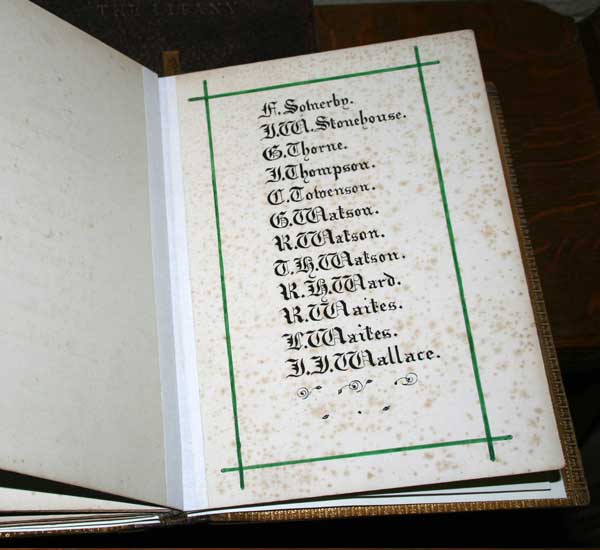 THE LITANY
F. Sotnerby.
J. W. Stonehouse.
G. Thorne.
J. Thompson.
C. Towenson.
G. Watson.
R. Watson.
T. H. Watson.
R. H. Ward.
R. Waites.
L. Waites.
J. J. Wallace.